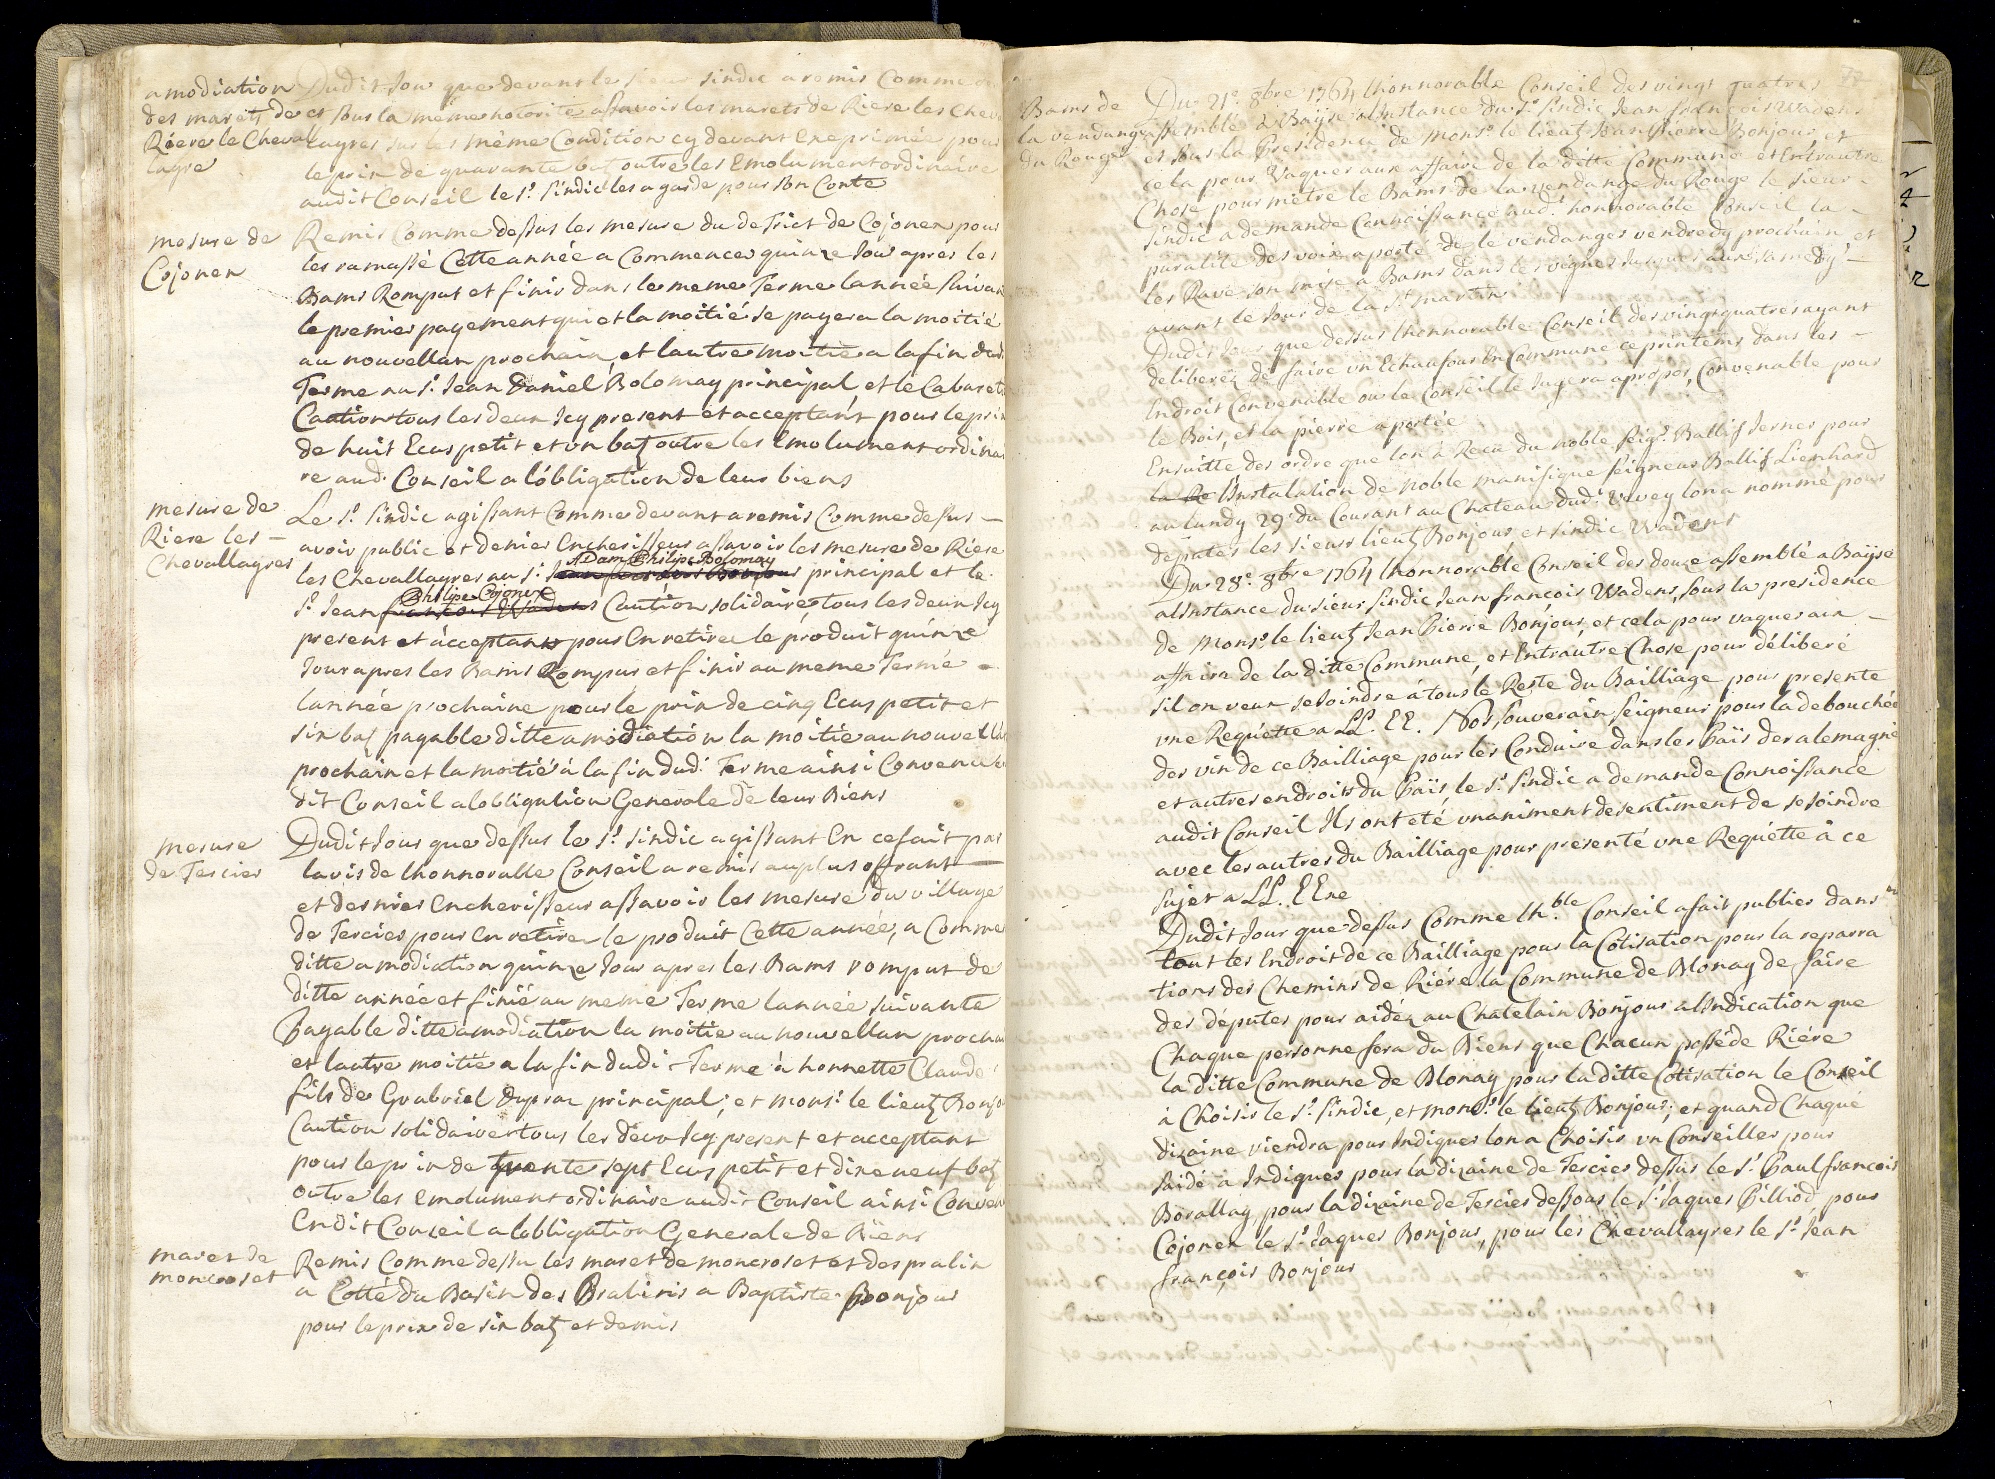 amodiation
des marets de
Riere le Cheval
layre
Dudit Jour que devant le sieur sindic a remis Comme
et sous la même notorité assavoir les marets de Riere les Cheva
layres sur les même Condition cy devant Exeprimée pour
le prix de quarante batz outre les Emolument ordinaire
audit Conseil le Sr. sindic les a gardé pour son Conte
mesure de
Cojonex
Remis Comme dessus les mesure du detrict de Cojonex pour
les ramassé Cette année a Commencer quinze Jour apres les
Bams Romput et finir dans le meme Terme lannée suivan
le premier payement qui et la moitié se payera la moitié
au nouvellan prochain et lautre moitié a la fin dud.
Terme au Sr. Jean Daniel Bolomay principal et le Cabaret
Caution tous les deux Icy present et acceptant pour le pri
de huit Ecus petit et un batz outre les Emolument ordinai
re aud. Conseil a lobligation de leur biens
mesure de
Riere les
Chevallayres
Le Sr. sindic agissant Comme devant a remis Comme dessus
avoir public et denier Encherisseur assavoir les mesure de Riere
Adam Philipe Bolomay
les Chevallayres au Sr. principal et le
Philipe Cojonex
Sr. Jean francois Wadens Caution solidaire, tous les deux Icy
present et acceptant pour En retirer le produit quinze
Jour apres les Bams Rompus et finir au meme Terme
lannée prochaine pour le prix de cinq Ecus petit et
six batz payable ditte amodiation la moitié au nouvellan
prochain et la moitié à la fin dud. Terme ainsi Convenu
dit Conseil a lobligation Generale de leur Biens
mesure
de Tercier
Dudit Jour que dessus le Sr. sindic agissant En ce fait par
lavis de lhonnorable Conseil a remis au plus offrant
et dernier Encherisseur assavoir les mesure du village
de Tercier pour En retirer le produit Cette année, a Comme
ditte amodiation quinze Jour apres les Bams romput de
ditte année et finié au meme Terme lannée suivante
Payable ditte amodiation la moitié au nouvellan procha
et lautre moitié a la fin dudi. Terme à honnette Claude
fils de Guabriel Dupraz principal, et monsr. le lieutz Bonjo
Caution solidaire tous les deux Icy present et acceptant
pour le prix de trente sept Ecus petit et dixe neuf batz
outre les Emolument ordinaire audit Conseil ainsi Conven
Endit Conseil a lobligation Generale de Biens
maret de
moncroset
Remis Comme dessu les maret de moncroset et des pralin
a Cotté du Basin des Pralinis a Baptiste Bonjour
pour le prix de six batz et demis
Bams de
la vendange
du Rouge
Du 21e. 8bre 1764 lhonnorable Conseil des vingt quatres
assemblé à Baÿse alinstance du Sr. sindic Jean françois Wadens
et sous la Presidence de Monsr. le lieutz Jean Pierre Bonjour, et
cela pour Vaquer aux affaire de la ditte Commune et Entrautre
Chose pour metre le Bams de la vendange du Rouge le sieur
sindic a demande Connoissance aud. honnorable Conseil la
puralité des voix a porté de le vendanger vendredy prochain et
les Rave son mise à Bams dans les vignes jusques au samedy
avant le Jour de la St. martin
Dudit Jour que dessus lhonnorable Conseil des vingt quatres ayant
deliberéz de faire un Echaufour En Commune ce printems dans les
Endroit Convenable ou le Conseil le Jugera apropos, Convenable pour
le Bois, et la pierre a portée
Ensuitte des ordre que lon à Recu du noble seigr. Ballif Jerner pour
la Re linstalation de noble manifique seigneur Ballif Lienhard
au lundy 29e. du Courant au Chateau dud. Vevey lon a nommé pour
deputes les sieurs lieutz Bonjour et sindic Wadens
Du 28e. 8bre 1764 lhonnorable Conseil des douze assemblé a Baÿse
alinstance du sieur sindic Jean françois Wadens, sous la presidence
de Monsr. le lieutz Jean Pierre Bonjour, et cela pour vaquer aux
affaire de la ditte Commune, et Entrautre Chose pour déliberé
sil on veux se Joindre à tous le Reste du Bailliage pour presente
une Requette a LL. EE. Nos souverain seigneur pour la debouchée
des vin de ce Bailliage pour les Conduire dans les Païs des alemagne
et autres endroits du Païs le Sr. sindic a demande Connoissance
audit Conseil Ils ont eté unaniment de sentiment de se Joindre
avec les autres du Bailliage pour présenté une Requette à ce
sujet a LL. EExe
Dudit Jour que dessus Comme lh.ble Conseil a fait publier dans
tout les Endroit de ce Bailliage pour la Cotisation pour la reparra
tions des Chemins de Riére la Commune de Blonay de faire
des députes pour aidéz au Chatelain Bonjour a lindication que
Chaque personne fera du Biens que Chacun posséde Riére
la ditte Commune de Blonay pour la ditte Cotisation le Conseil
à Choisir le Sr. sindic, et monsr. le lieutz Bonjour; et quand Chaque
dizaine viendra pour Indiquer lon a Choisir un Conseiller pour
laidé à Indiquer pour la dizaine de Tercier dessus le Sr. Paul francois
Borallay, pour la dizaine de Tercier dessous le Sr. Jaques Pilliod, pour
Cojonex le Sr. Jaques Bonjour, pour les Chevallayres le Sr. Jean
françois Bonjour